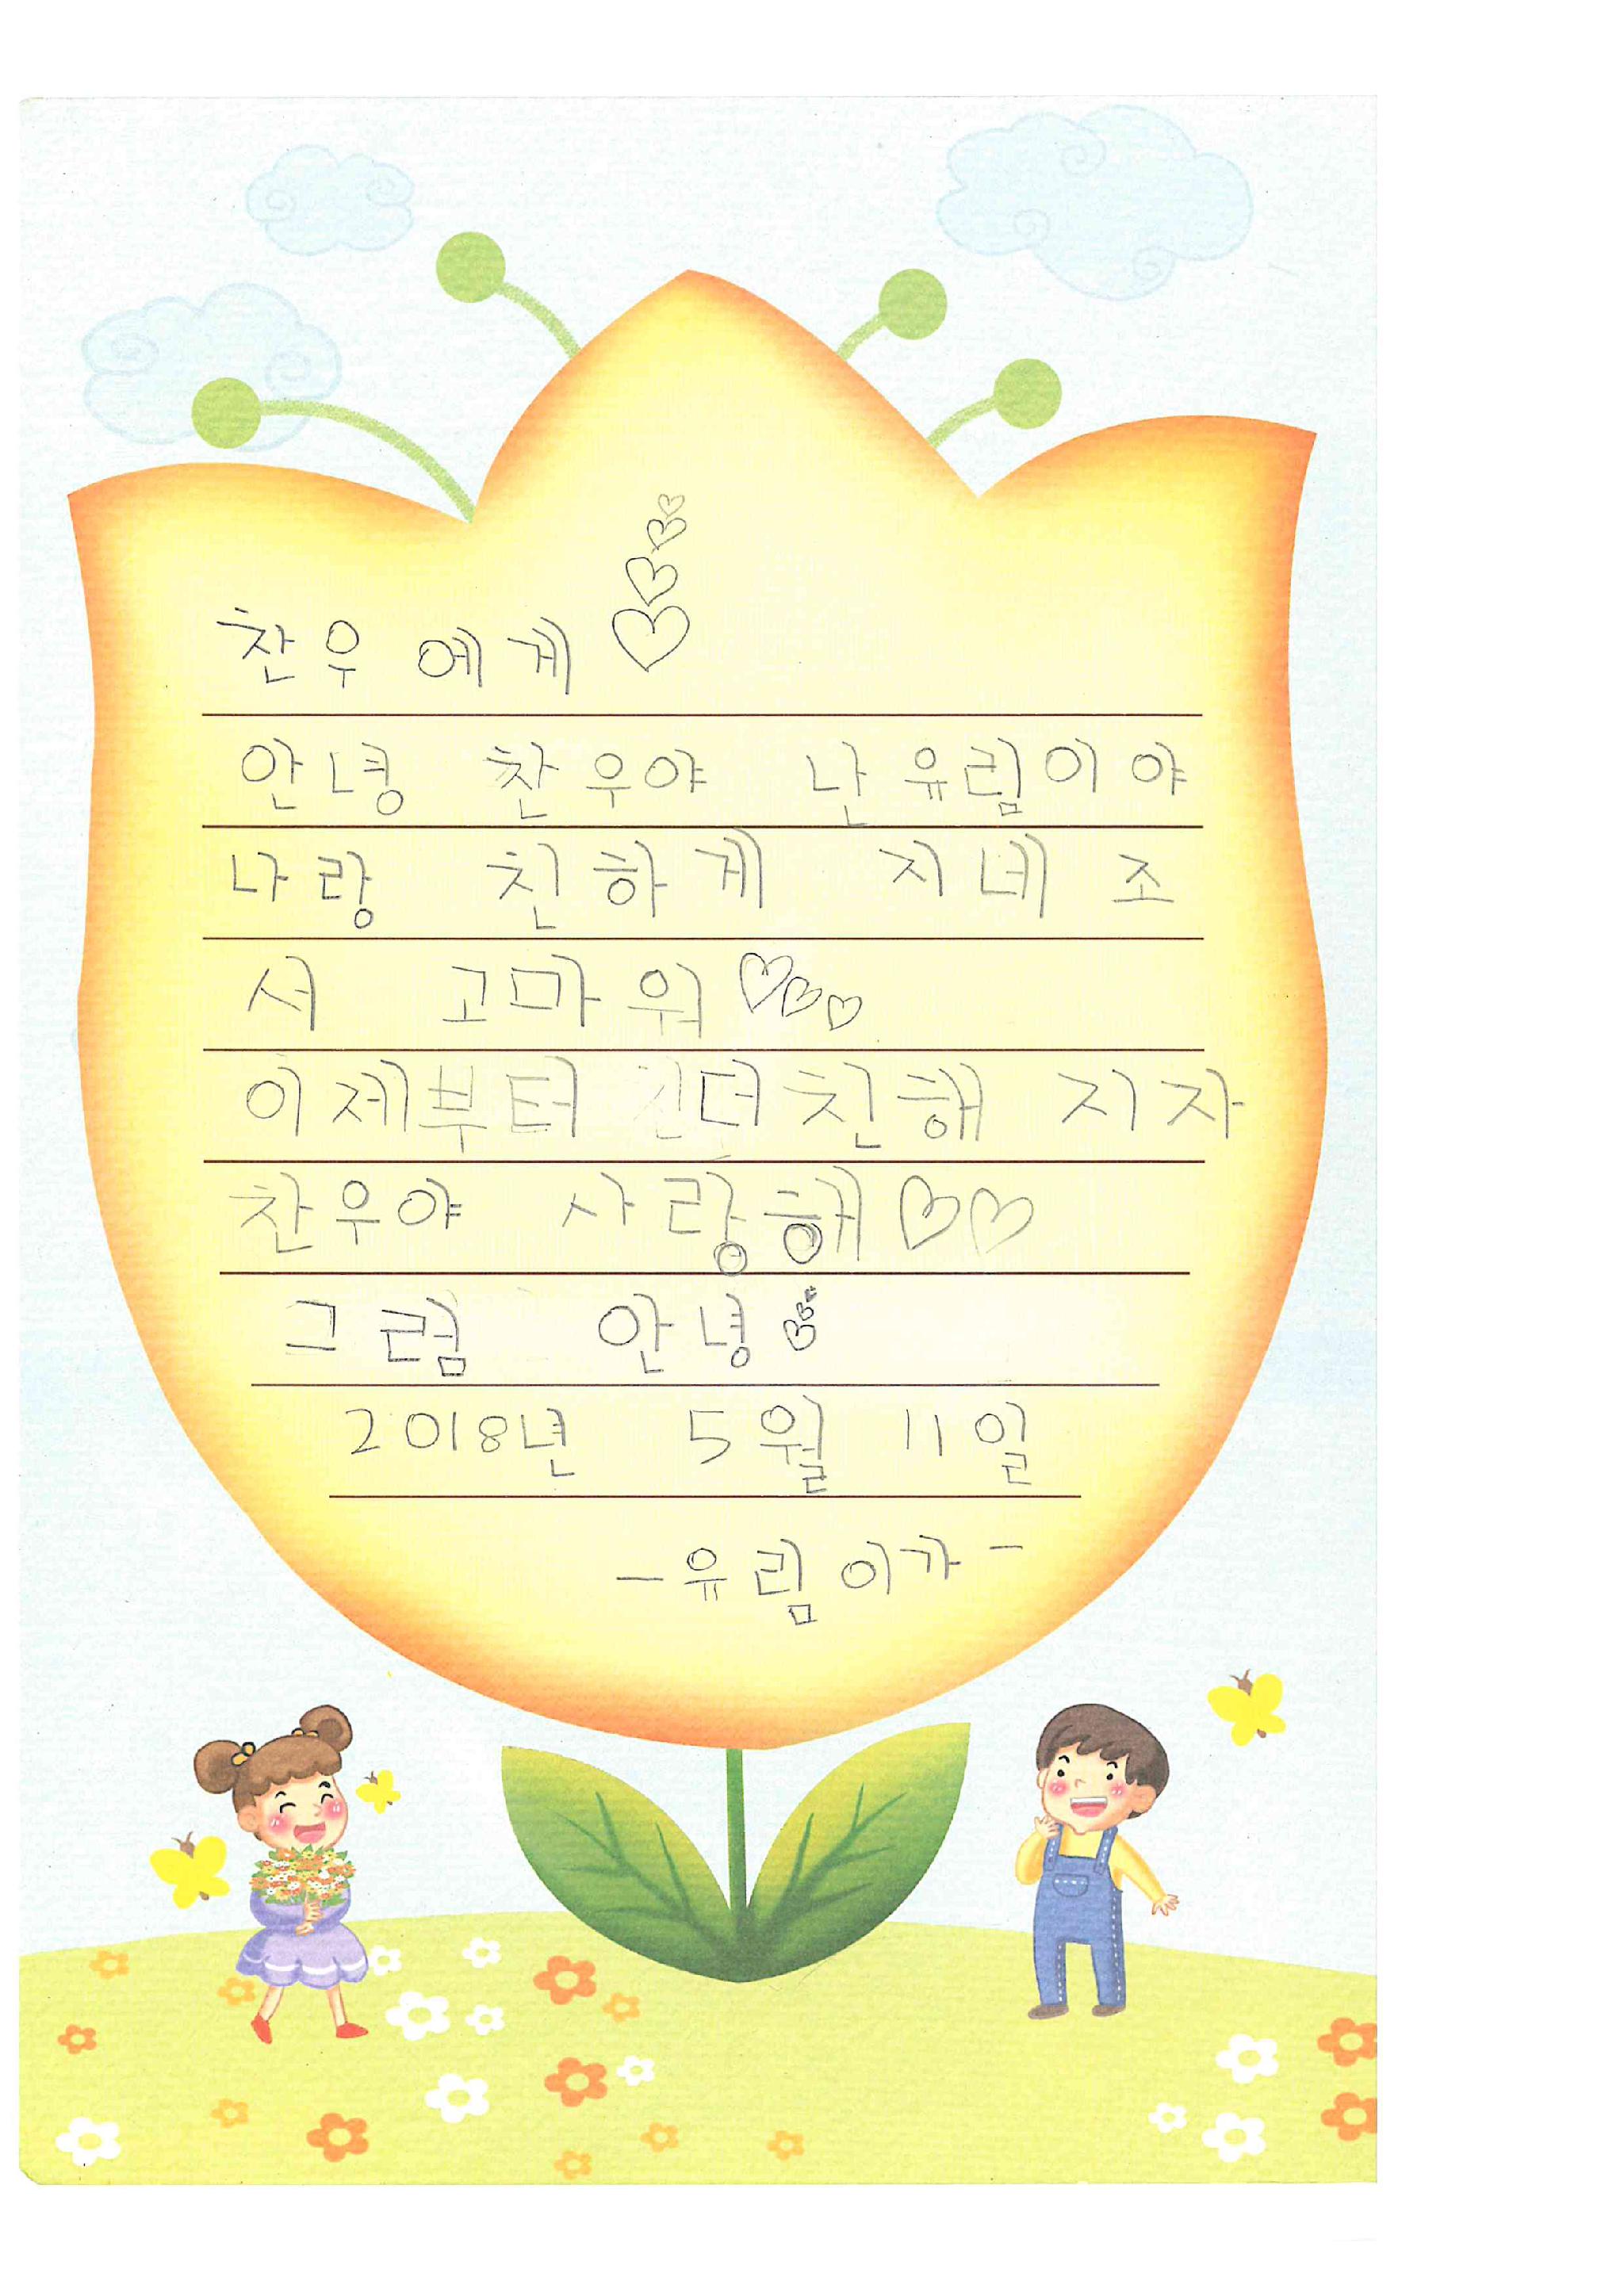 찬우에게♡♡♡♡
안녕 찬우야 난유림이야
나랑 친하게 지네조
서 고마워♡♡♡
이제부터 더친해 지자
찬우야 사랑해♡♡
그럼 안녕♡♡♡
2018년 5월 11일
-유림이가-